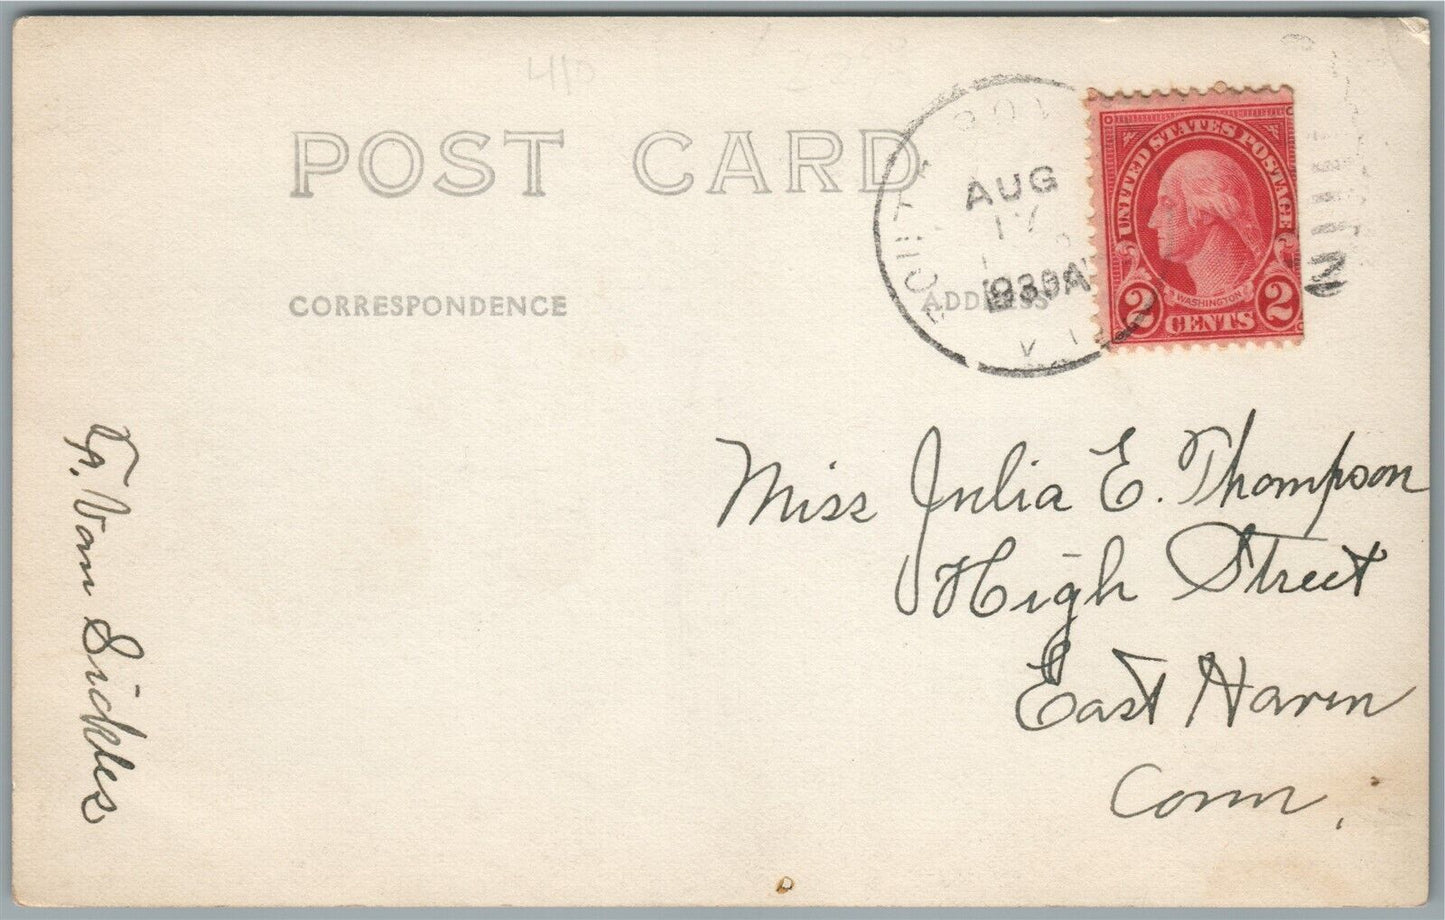 410
POST CARD
CORRESPONDENCE
ADDRESS
AUG
17
1930
UNITED STATES POSTAGE
WASHINGTON
2 CENTS 2
Miss Julia E. Thompson
High Street
East Haven
Conn.
Van Sickles